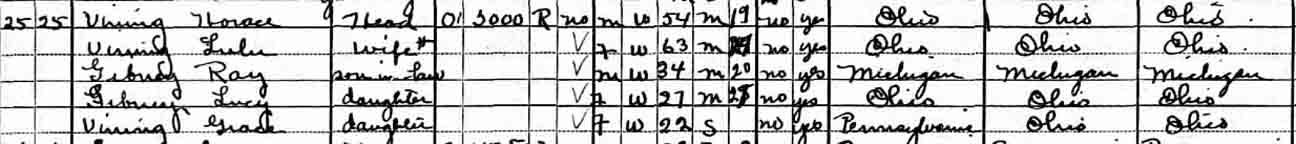 25 25 Vining Horace Head O 3000 R no m W 54 m 19 no yes Ohio Ohio Ohio
Vining Lulu wife V f w 63 m no yes Ohio Ohio Ohio
Ray son in law V m W 34 m 20 no yes Michigan Michigan Michigan
Lucy daughter V f W 27 m no yes Ohio Ohio Ohio
Vining Grace daughter V f W 22 S no yes Pennsylvania Ohio Ohio